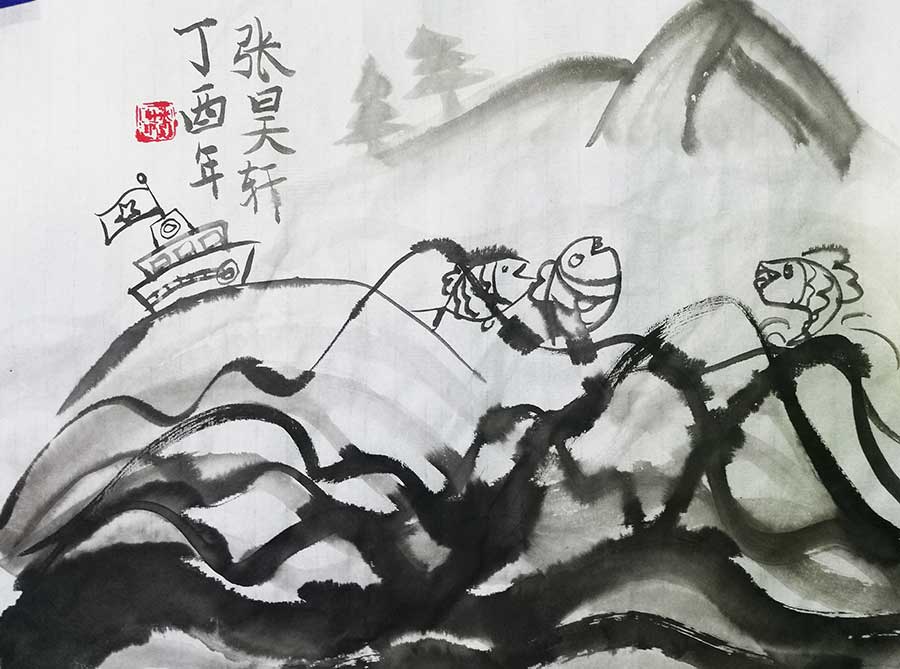 张昊轩
丁酉年